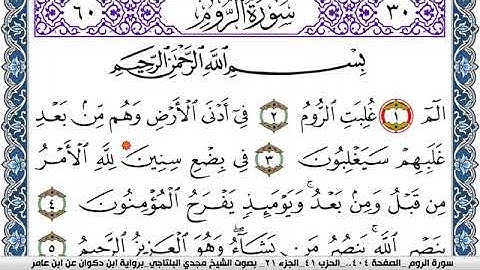 ٣٠ سُورَةُ الرُّومِ ٦٠
بِسْمِ اللَّهِ الرَّحْمَٰنِ الرَّحِيمِ
الٓمٓ ١ غُلِبَتِ ٱلرُّومُ ٢ فِىٓ أَدْنَى ٱلْأَرْضِ وَهُم مِّنۢ بَعْدِ
غَلَبِهِمْ سَيَغْلِبُونَ ٣ فِى بِضْعِ سِنِينَ لِلَّهِ ٱلْأَمْرُ
مِن قَبْلُ وَمِنۢ بَعْدُ وَيَوْمَئِذٍ يَفْرَحُ ٱلْمُؤْمِنُونَ ٤
بِنَصْرِ ٱللَّهِ يَنصُرُ مَن يَشَآءُ وَهُوَ ٱلْعَزِيزُ ٱلرَّحِيمُ ٥
سورة الروم _الصفحة ٤٠٤_.. الحزب ٤١_ الجزء ٢١_ بصوت الشيخ مجدي البلتاجي_برواية ابن ذكوان عن ابن عامر